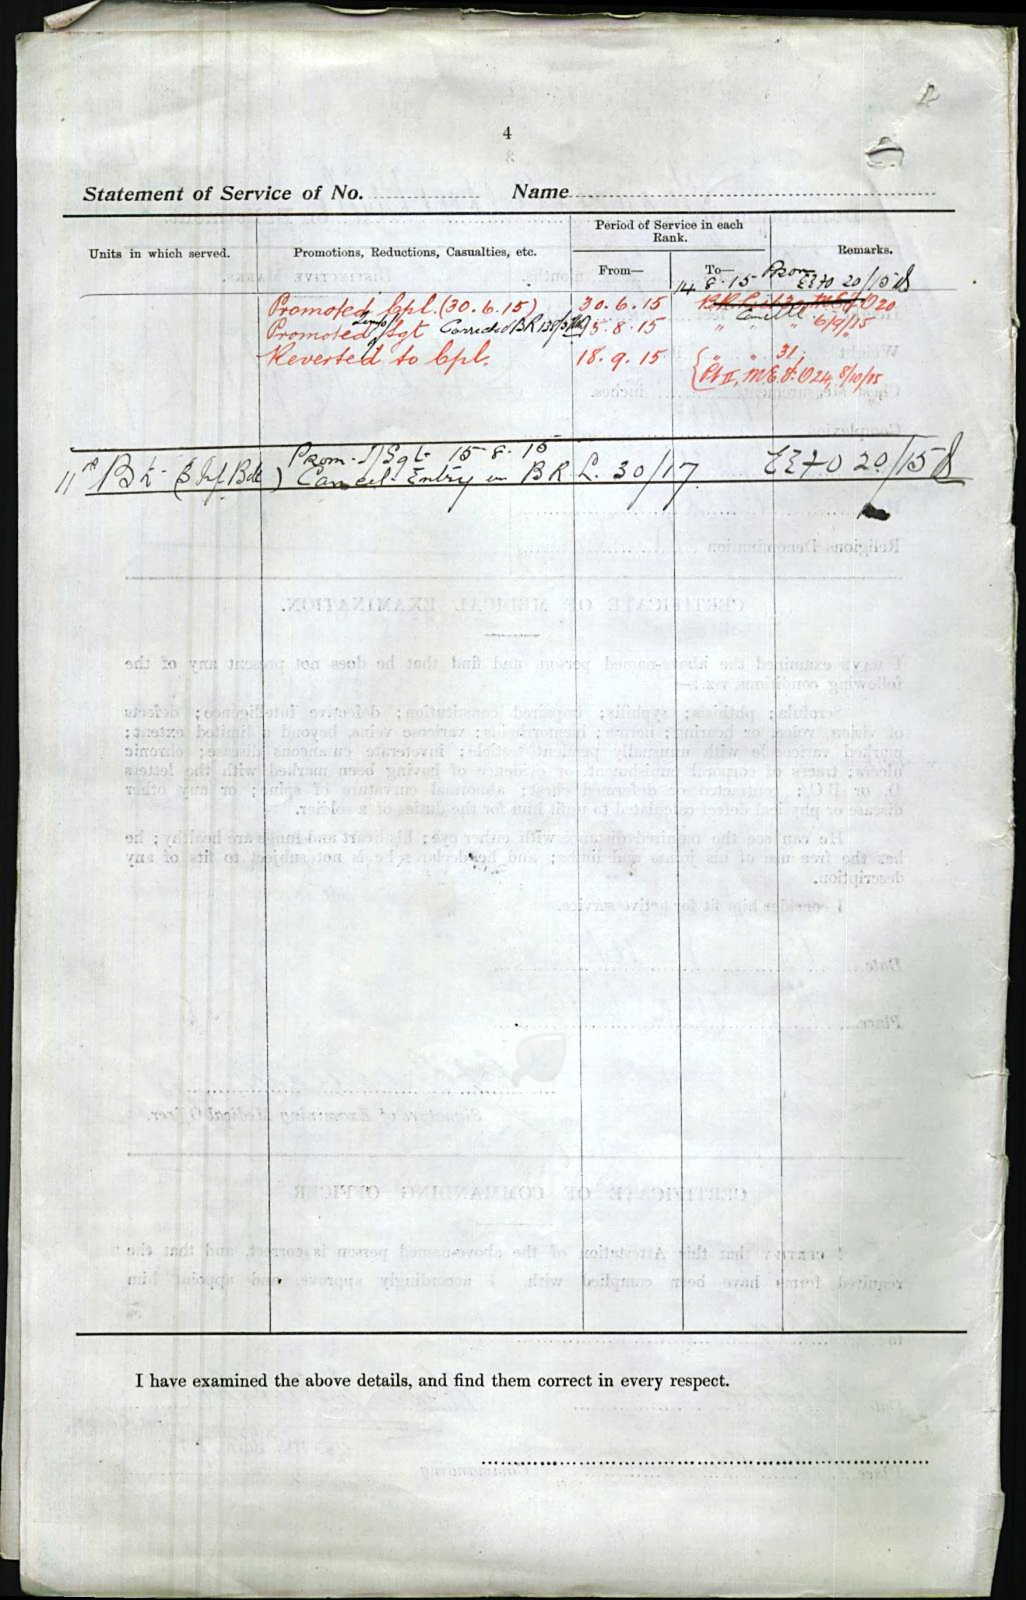 4
Statement of Service of No. Name
Units in which served. Promotions, Reductions, Casualties, etc. Period of Service in each Rank. Remarks.
From— To—
14.8.15 Prom EEFO 20/15
Promoted Cpl. (30.6.15) 30.6.15 O 20
Promoted Sgt Corrected BR 15.8.15 " " " 6/9/15
Cancelled
Reverted to Cpl. 18.9.15 " " 31,
Pt II, M.E.F. O 24, 8/10/15
Prom. Sgt 15-8-15
11th Bt (3 Inf Bde) Cancel Entry in BRL. 30/17 EEFO 20/15
I have examined the above details, and find them correct in every respect.